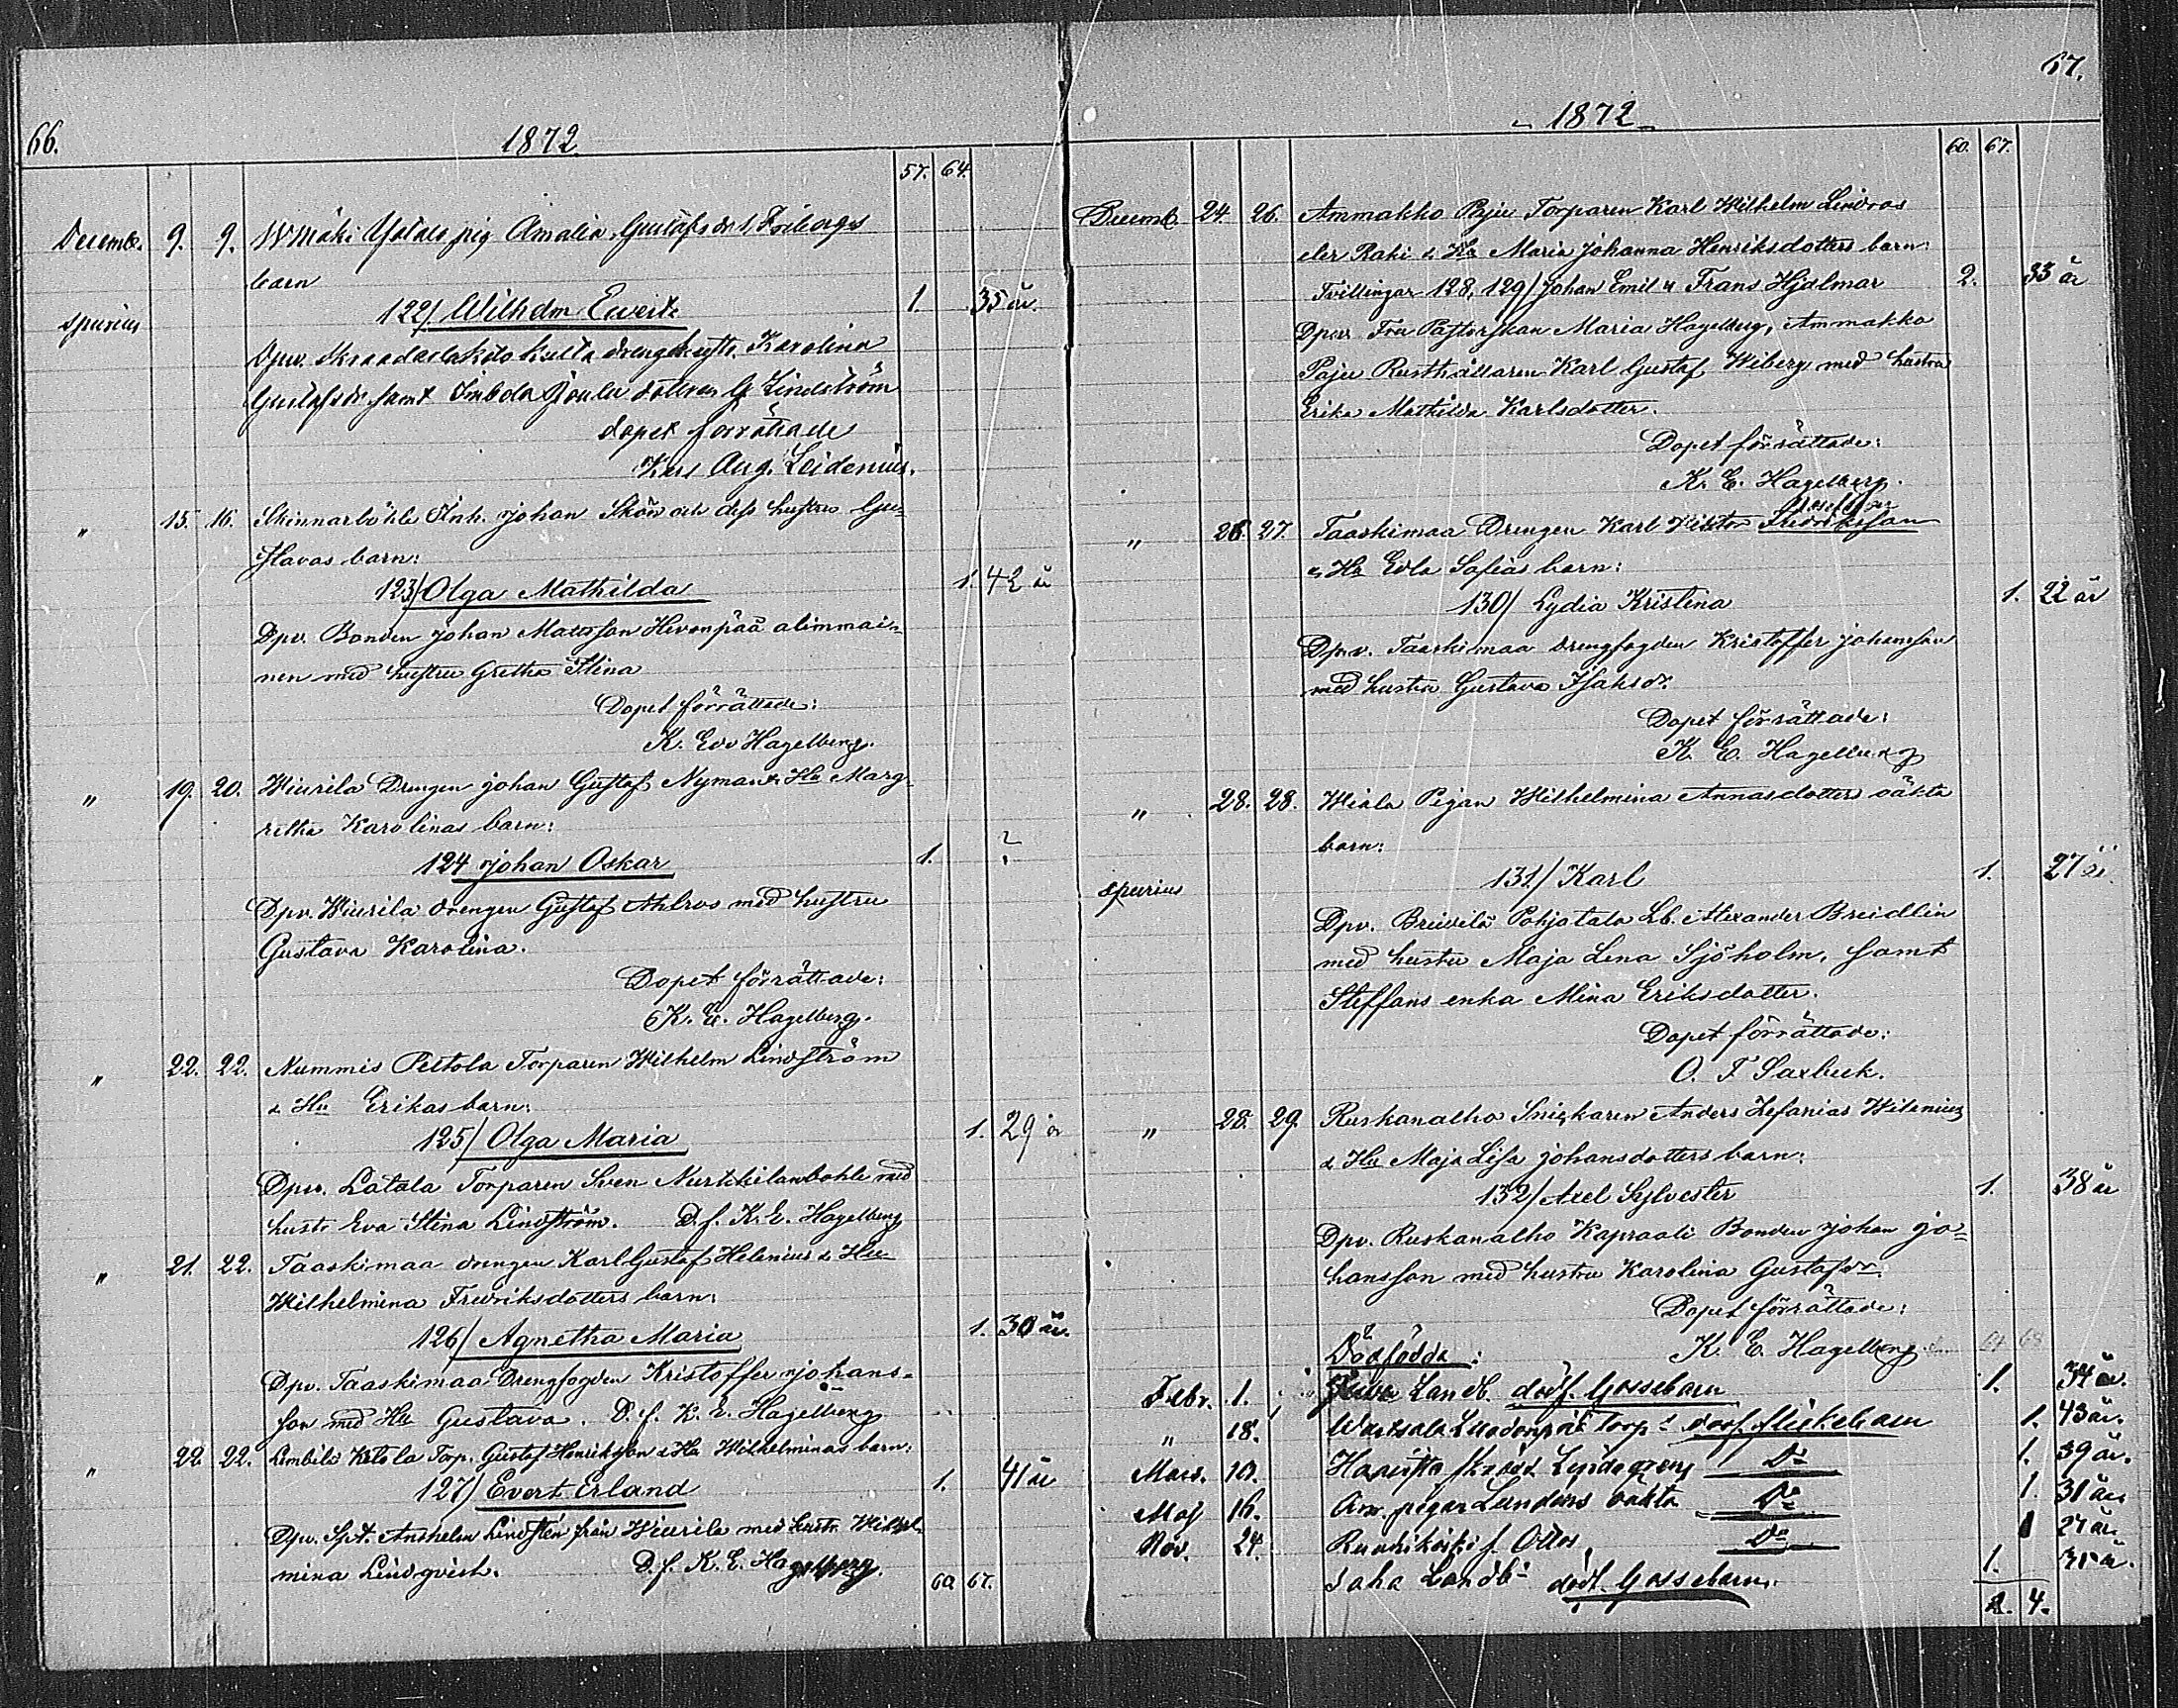 66.
1872
57. 64.
Decemb. 9. 9. Wmäki Yotalo pig Amalia Gustafsdr Fribergs
barn
spurius
122/. Wilhelm Evert 1. 35 år.
Dpv.
Gustafsdr samt G. Lindström
dopet förrättade
Karl Aug. Leidenius.
" 15. 16. Skinnarböhle Inh. Johan Skön och dess hustru Gu-
stavas barn:
123/ Olga Mathilda 1. 42 år
Dpv. Bonden Johan Matsson Hevonpää alimmai-
nen med hustru Gretha Stina
Dopet förrättade:
K. Edv Hagelberg.
" 19. 20. Wiurila Drengen Johan Gustaf Nyman & Hu Marg-
retha Karolinas barn:
124 Johan Oskar 1. ?
Dpv. Wiurila drengen Gustaf Ahlros med hustru
Gustava Karolina.
Dopet förrättade:
K. E. Hagelberg.
" 22. 22. Nummis Peltola Torparen Wilhelm Lindström
& Hu Erikas barn:
125/ Olga Maria 1. 29 år
Dpv. Latala Torparen Sven med
hustr. Eva Stina Lindström. D. f. K. E. Hagelberg
" 21. 22. Taaskimaa drengen Karl Gustaf Helenius & Hu
Wilhelmina Fredriksdotters barn:
126/ Agnetha Maria 1. 30 år.
Dpv. Taaskimaa Drengfogden Kristoffer Johans-
son med Hu Gustava. D. f. K. E. Hagelberg
" 22. 22. Ketola Torp. Gustaf Henriksson & Hu Wilhelminas barn:
127/ Evert Erland 1. 41 år
Dpv. Anshelm Lindstén från Wiurila med hustr. Wilhel-
mina Lindqvist. D. f. K. E. Hagelberg.
60 67.
67.
1872
60. 67.
Decemb. 24. 26. Ammakko Paju Torparen Karl Wilhelm Lindros
eler Raki & Hu Maria Johanna Henriksdotters barn:
Tvillingar 128, 129/ Johan Emil & Frans Hjalmar 2. 33 år
Dpv. Fru Pastorskan Maria Hagelberg, Ammakko
Paju Rusthållaren Karl Gustaf Wiberg med hustru
Erika Mathilda Karlsdotter.
Dopet förrättade:
K. E. Hagelberg.
" 26. 27. Taaskimaa Drengen Karl Viktor Fredriksson
& Hu Edla Sofias barn:
130/ Lydia Kristina 1. 22 år
Dpv. Taaskimaa drengfogden Kristoffer Johansson
med hustru Gustava Isaksdr.
Dopet förrättade:
K. E. Hagelberg
" 28. 28. Wiala Pigan Wilhelmina Annasdotters oäkta
barn:
spurius
131/ Karl 1. 27 år.
Dpv. Pohjatalo Lb. Alexander Breidlin
med hustru Maja Lena Sjöholm, samt
Steffans enka Mina Eriksdotter.
Dopet förrättade:
O. F. Saxbeck.
" 28. 29. Ruskanalho Snickaren Anders Zefanias Wilenius
& Hu Maja Lisa Johansdotters barn:
132/ Axel Sylvester 1. 38 år
Dpv. Ruskanalho Kapraali Bonden Johan Jo-
hansson med hustru Karolina Gustafsdr.
Dopet förrättade:
Dödfödda: K. E. Hagelberg
Febr. 1. Landb. dödf. Gossebarn 1. 34 år.
" 18. Torp. dödf. flickebarn 1. 43 år.
Mars. 10. Do 1. 39 år.
Maj 16. pigan Lundens oäkta Do 1. 31 år
Nov. 24. Do 1 27 år
Joha Landb. dödf. Gossebarn. 1. 31 år.
2. 4.